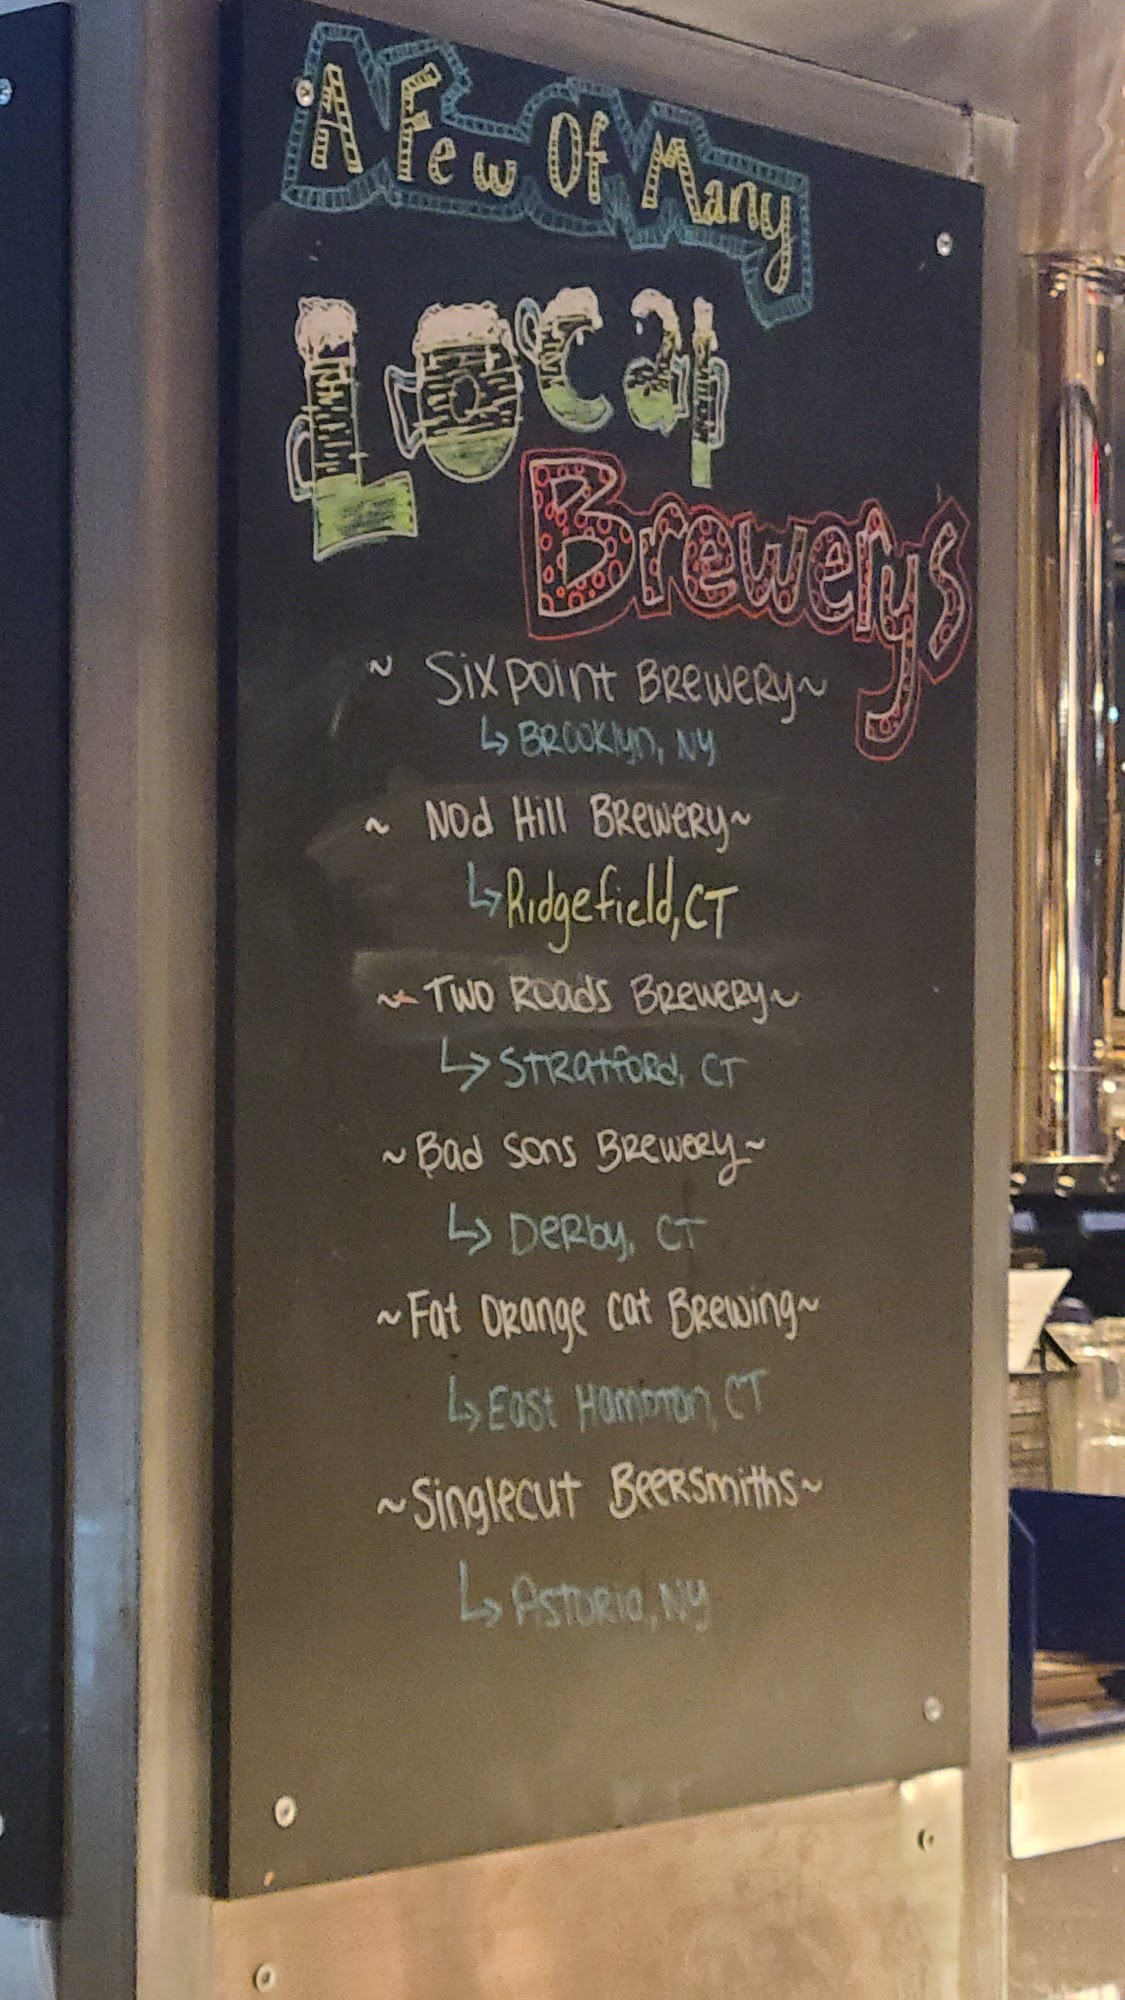 A Few Of Many
Local
Brewerys
~ Sixpoint Brewery ~
↳ Brooklyn, NY
~ Nod Hill Brewery ~
↳ Ridgefield, CT
~ Two Roads Brewery ~
↳ Stratford, CT
~ Bad Sons Brewery ~
↳ Derby, CT
~ Fat Orange Cat Brewing ~
↳ East Hampton, CT
~ Singlecut Beersmiths ~
↳ Astoria, NY